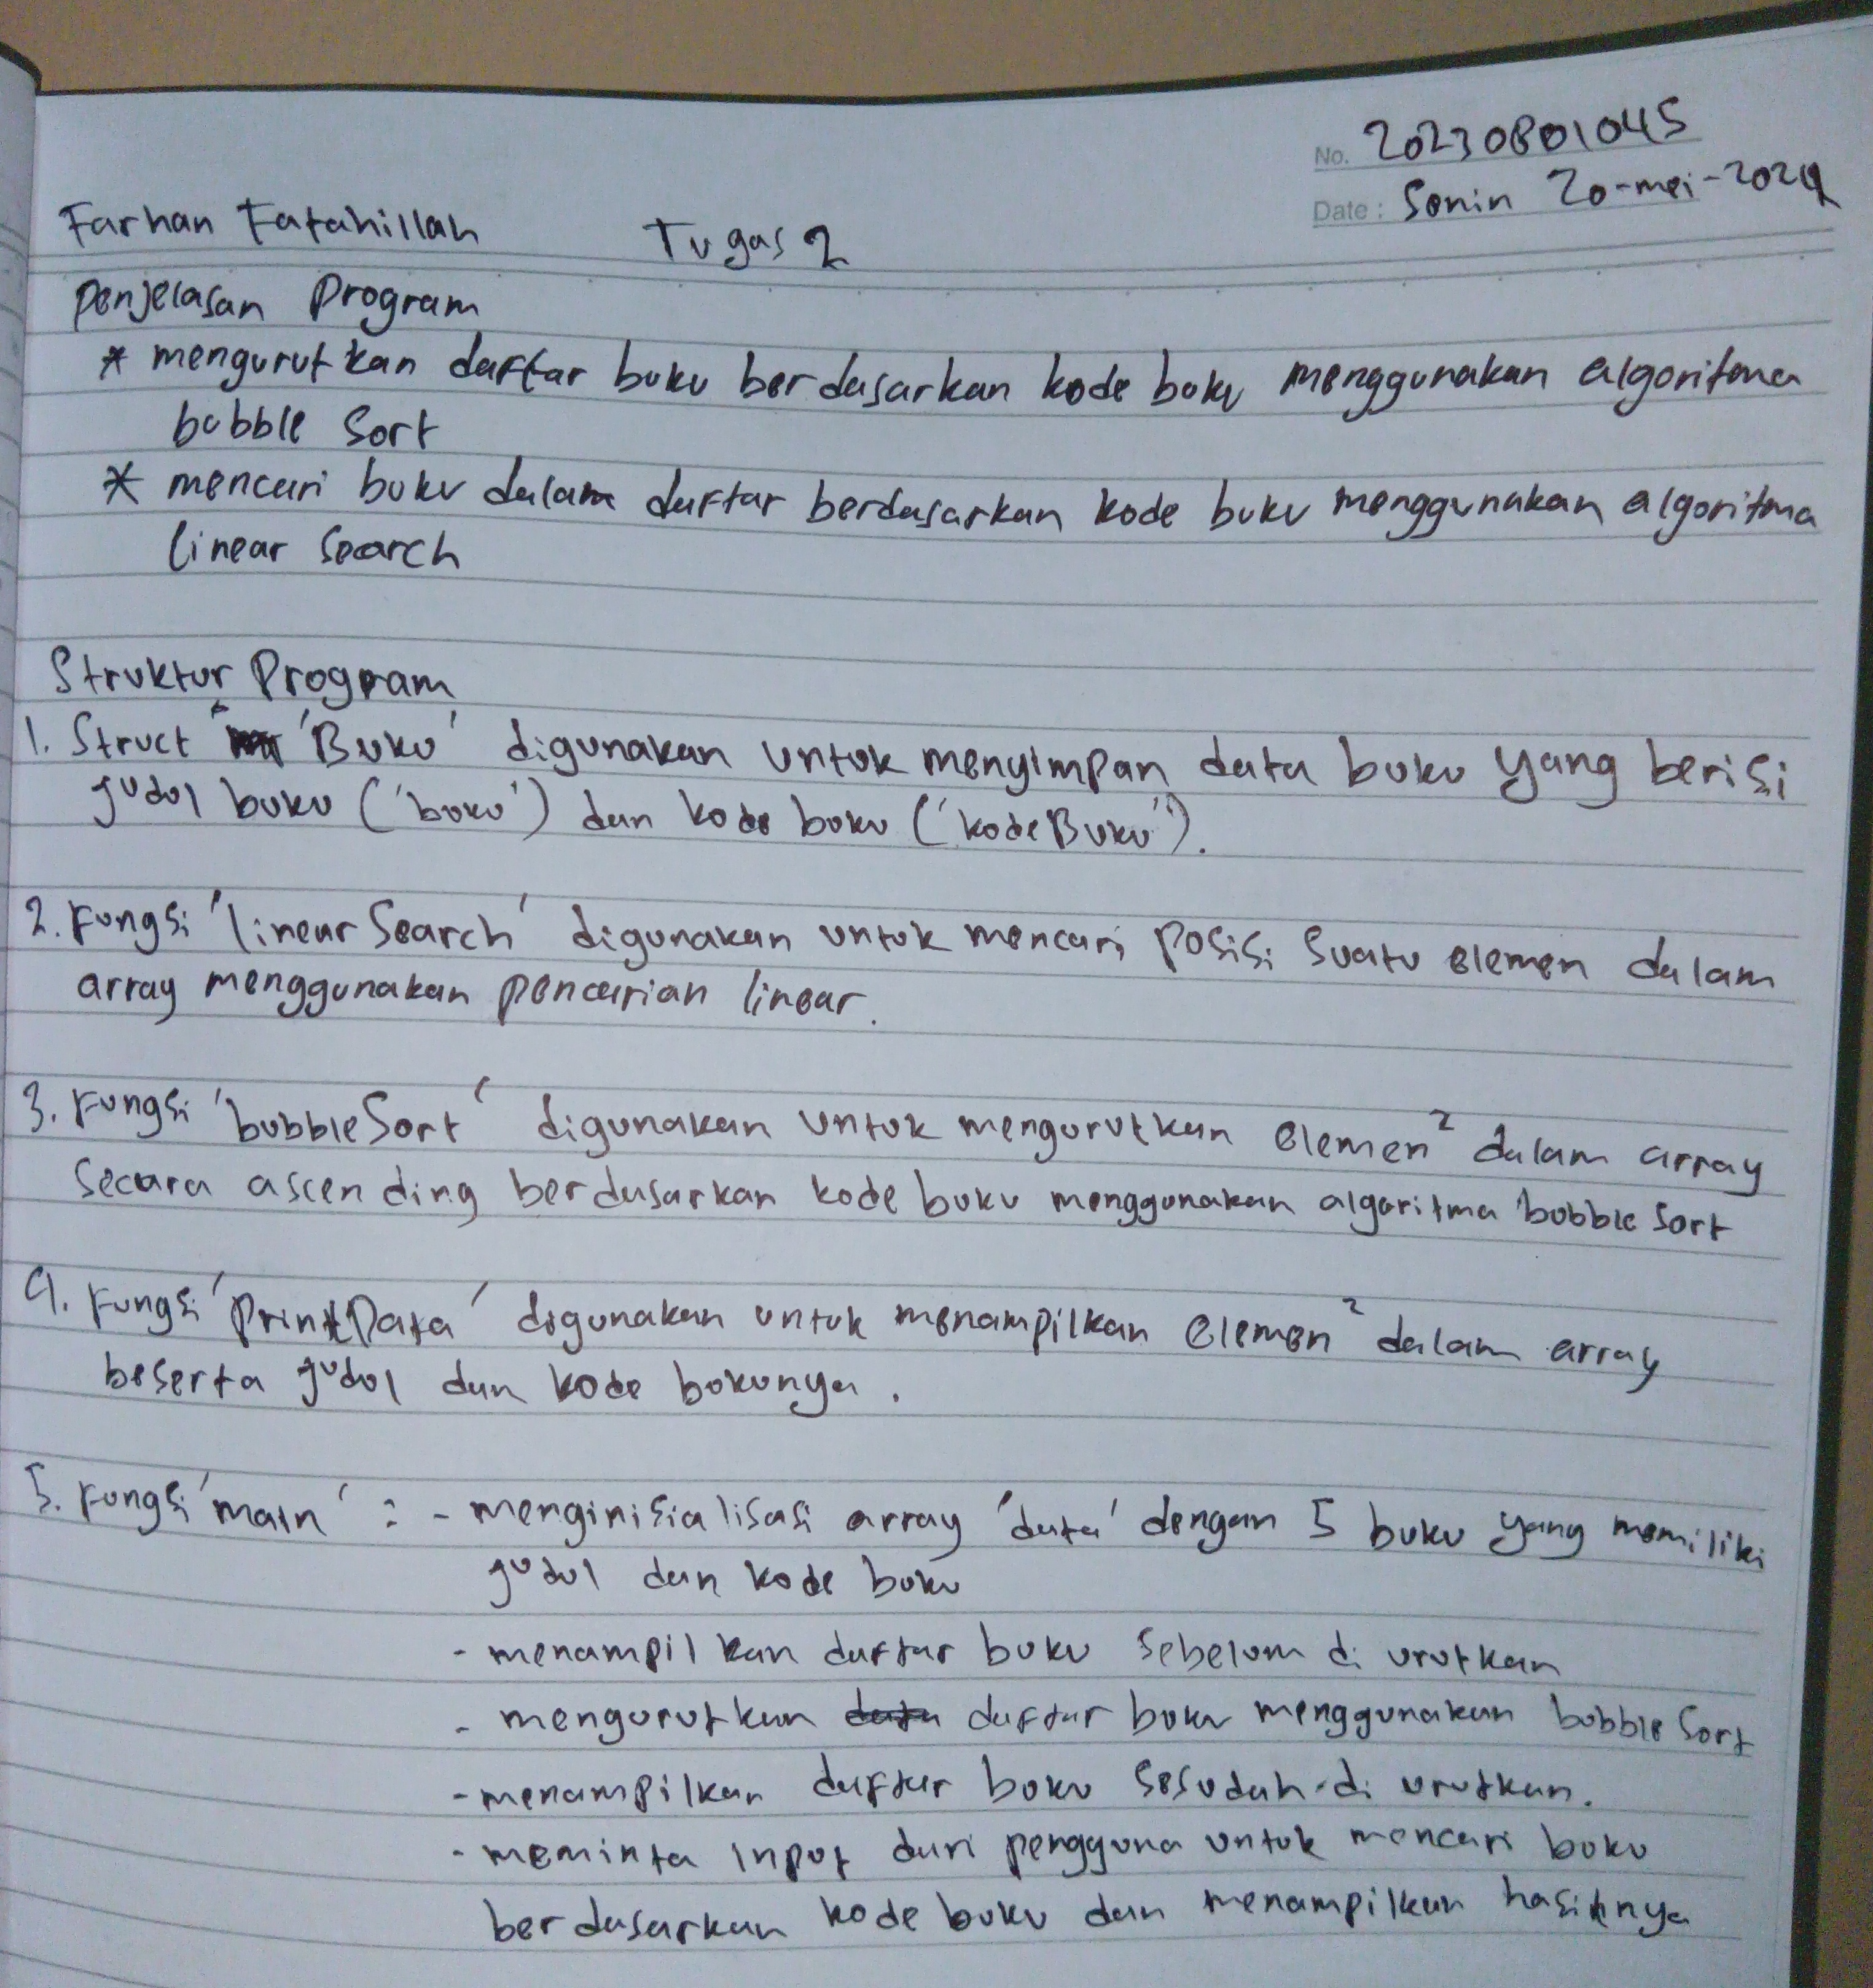 No. 20230801045
Date : Senin 20-mei-2024
Farhan Fatahillah Tugas 2
Penjelasan Program
* mengurutkan daftar buku berdasarkan kode buku menggunakan algoritma
bubble Sort
* mencari buku dalam daftar berdasarkan kode buku menggunakan algoritma
linear Search
Struktur Program
1. Struct 'Buku' digunakan untuk menyimpan data buku yang berisi
judul buku ('buku') dan kode buku ('kodeBuku').
2. Fungsi 'linearSearch' digunakan untuk mencari posisi suatu elemen dalam
array menggunakan pencarian linear.
3. Fungsi 'bubbleSort' digunakan untuk mengurutkan elemen² dalam array
secara ascending berdasarkan kode buku menggunakan algoritma bubble sort
4. Fungsi 'PrintData' digunakan untuk menampilkan elemen² dalam array
beserta judul dan kode bukunya.
5. Fungsi 'main' : - menginisialisasi array 'data' dengan 5 buku yang memiliki
judul dan kode buku
- menampilkan daftar buku sebelum di urutkan
- mengurutkan data daftar buku menggunakan bubble Sort
- menampilkan daftar buku sesudah di urutkan.
- meminta input dari pengguna untuk mencari buku
berdasarkan kode buku dan menampilkan hasilnya